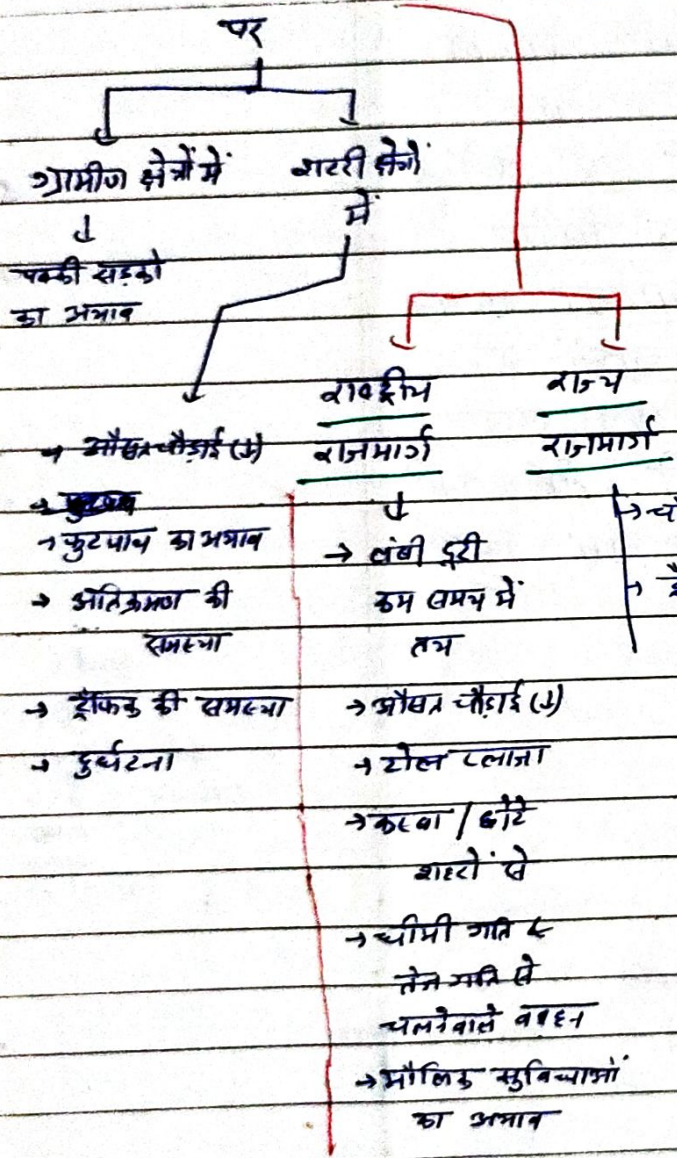 पर
ग्रामीण क्षेत्रों में
↓
पक्की सड़को
का अभाव
शहरी क्षेत्रों
में
→ औसत चौड़ाई (↓)
→ फुटपाथ का अभाव
→ अतिक्रमण की
समस्या
→ ट्रैफिक की समस्या
→ दुर्घटना
राष्ट्रीय
राजमार्ग
↓
→ लंबी दूरी
कम समय में
तय
→ औसत चौड़ाई (↓)
→ टोल प्लाजा
→ कस्बा / छोटे
शहरों से
→ धीमी गति &
तेज गति से
चलनेवाले वाहन
→ मौलिक सुविधाओं
का अभाव
राज्य
राजमार्ग